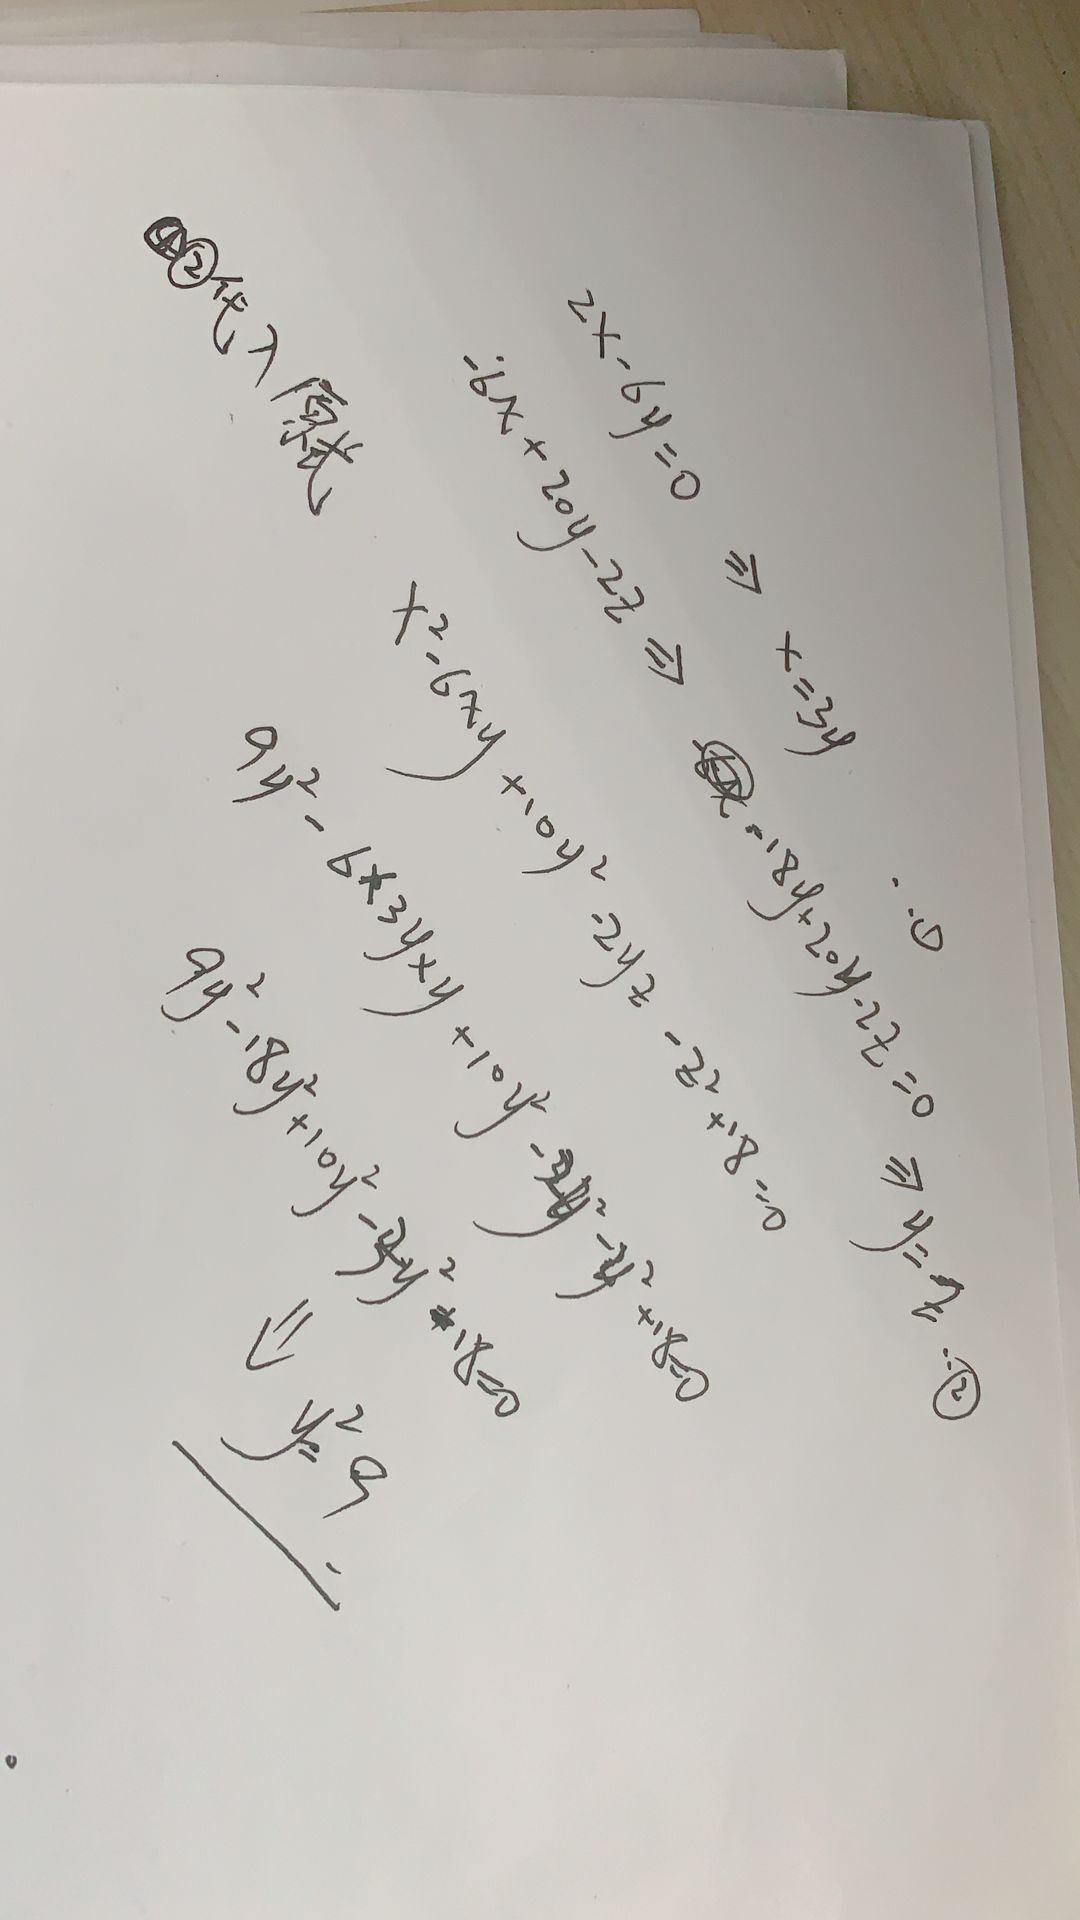 2x-6y=0 ⇒ x=3y ...①
-6x+20y-2z ⇒ -18y+20y-2z=0 ⇒ y=z ...②
②代入原式
x²-6xy+10y²-2yz-z²+18=0
9y²-6×3y×y+10y²-2y²-y²+18=0
9y²-18y²+10y²-3y²+18=0
⇒ y²=9